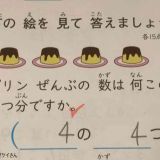 の絵を見て答えましょ
各15点
プリン ぜんぶの 数は 何こ
つ分ですか。
( 4の 4つ